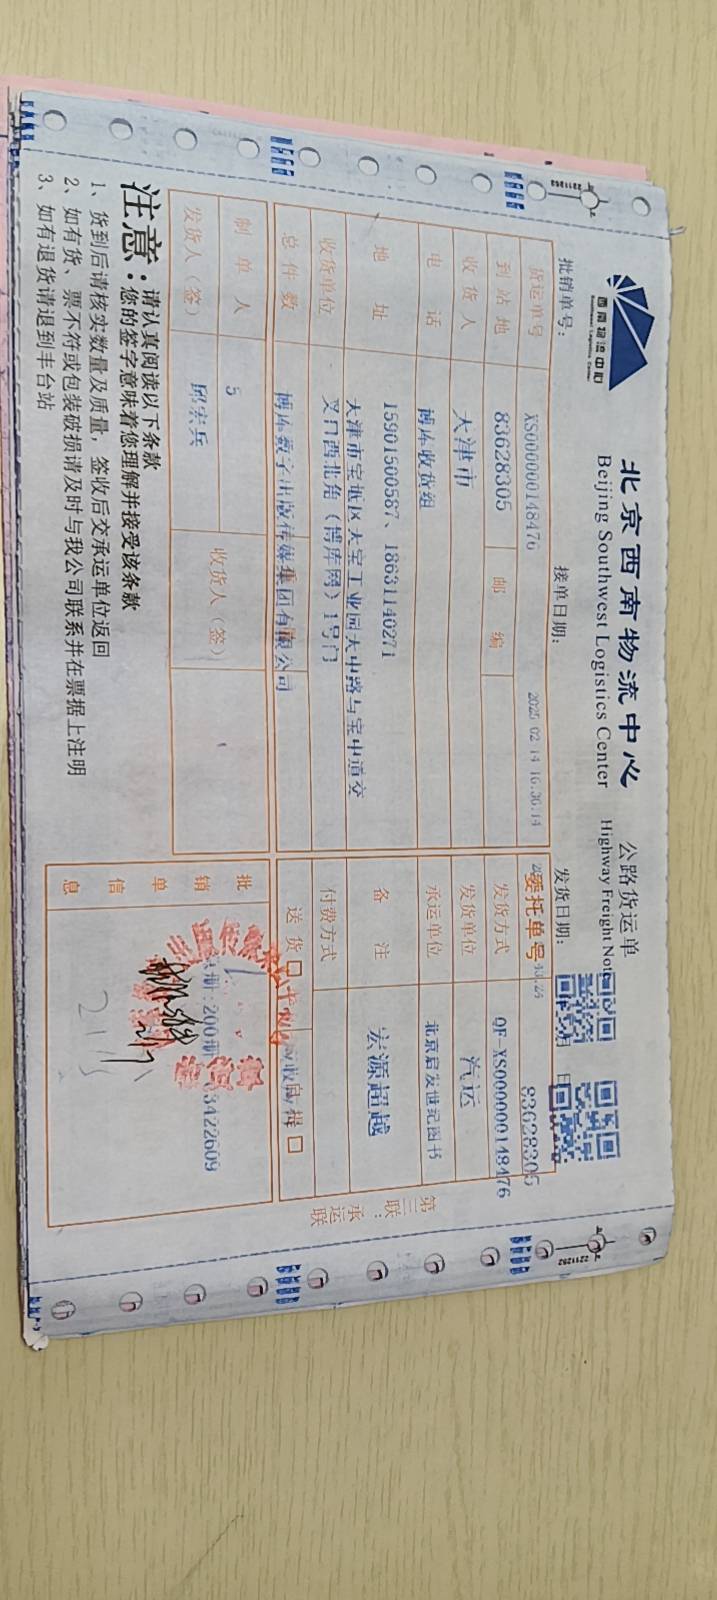 西南物流中心
Southwest Logistics Center
北京西南物流中心
Beijing Southwest Logistics Center
公路货运单
Highway Freight Note
批销单号：
接单日期：
发货日期：
月
日
XS000000148476
2025 02 14 16:30:14
货运单号
83628305
邮编
委托单号
83628305
到站地
天津市
发货方式
QF-XS000000148476
收货人
博库收货组
发货单位
汽运
电话
15901500587、18631140271
承运单位
北京启发世纪图书
地址
天津市宝坻区大宝工业园天中路与宝中道交
叉口西北角（博库网）1号门
备注
宏源超越
收货单位
博库数字出版传媒集团有限公司
付费方式
总件数
5
送货□
自提□
制单人
邱宏兵
发货人（签）
收货人（签）
批销单信息
200册
83422609
第三联：承运联
注意：
请认真阅读以下条款
您的签字意味着您理解并接受该条款
1、货到后请核实数量及质量，签收后交承运单位返回
2、如有货、票不符或包装破损请及时与我公司联系并在票据上注明
3、如有退货请退到丰台站